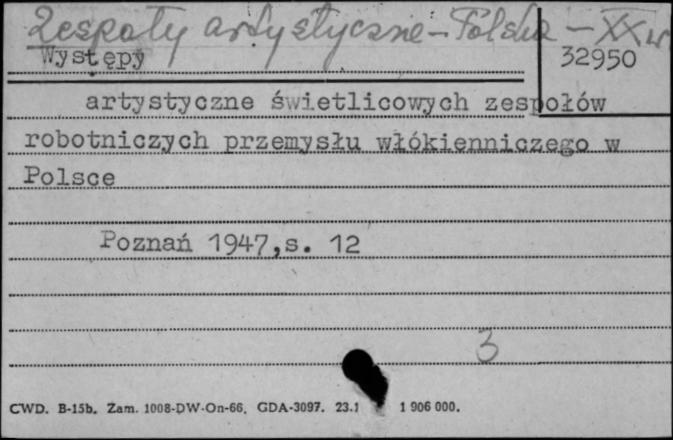 Zespoły artystyczne - Polska - XX w
Występy
32950
artystyczne świetlicowych zespołów
robotniczych przemysłu włókienniczego w
Polsce
Poznań 1947,s. 12
3
CWD. B-15b. Zam. 1008-DW-On-66. GDA-3097. 23.1 1 906 000.